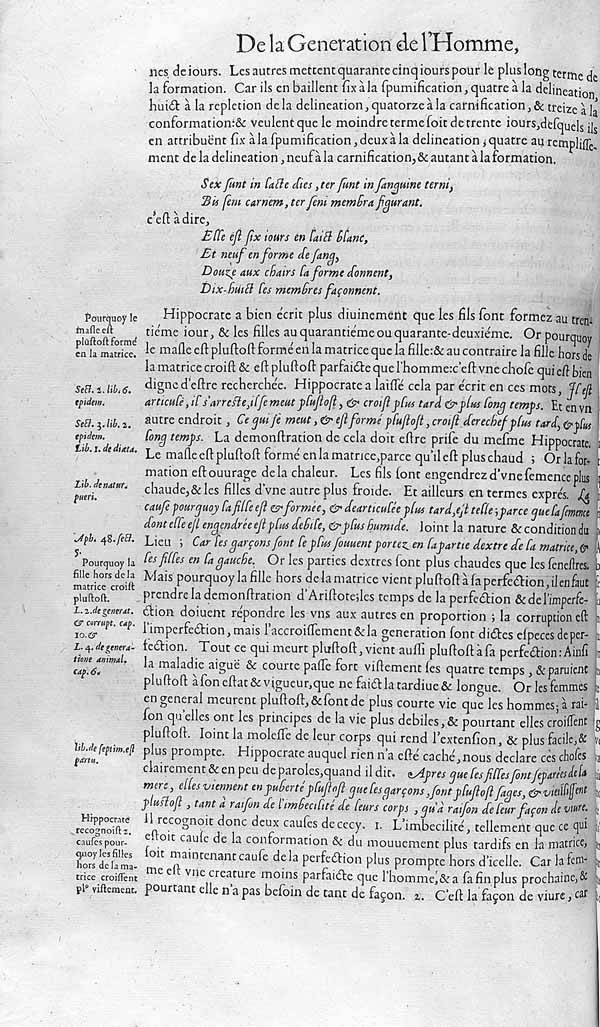 De la Generation de l'Homme,
nes de iours. Les autres mettent quarante cinq iours pour le plus long terme de
la formation. Car ils en baillent ſix à la ſpumification, quatre à la delineation,
huict à la repletion de la delineation, quatorze à la carnification, & treize à la
conformation: & veulent que le moindre terme ſoit de trente iours, deſquels ils
en attribuënt ſix à la ſpumification, deux à la delineation, quatre au rempliſſe-
ment de la delineation, neuf à la carnification, & autant à la formation.
Sex ſunt in lacte dies, ter ſunt in ſanguine terni,
Bis ſeni carnem, ter ſeni membra figurant.
c'eſt à dire,
Elle eſt ſix iours en laict blanc,
Et neuf en forme de ſang,
Douze aux chairs la forme donnent,
Dix-huict les membres façonnent.
Pourquoy le
maſle eſt
pluſtoſt formé
en la matrice.
Hippocrate a bien écrit plus diuinement que les fils ſont formez au tren-
tiéme iour, & les filles au quarantiéme ou quarante-deuxiéme. Or pourquoy
le maſle eſt pluſtoſt formé en la matrice que la fille: & au contraire la fille hors de
la matrice croiſt & eſt pluſtoſt parfaicte que l'homme: c'eſt vne choſe qui eſt bien
Sect. 2. lib. 6.
epidem.
digne d'eſtre recherchée. Hippocrate a laiſſé cela par écrit en ces mots, Il eſt
articulé, il s'arreſte, il ſe meut pluſtoſt, & croiſt plus tard & plus long temps. Et en vn
Sect. 3. lib. 2.
epidem.
autre endroit, Ce qui ſe meut, & eſt formé pluſtoſt, croiſt derechef plus tard, & plus
long temps. La demonſtration de cela doit eſtre priſe du meſme Hippocrate,
Lib. 1. de diæta.
Le maſle eſt pluſtoſt formé en la matrice, parce qu'il eſt plus chaud ; Or la for-
mation eſt ouurage de la chaleur. Les fils ſont engendrez d'vne ſemence plus
Lib. de natur.
pueri.
chaude, & les filles d'vne autre plus froide. Et ailleurs en termes exprés. La
cauſe pourquoy la fille eſt & formée, & dearticulée plus tard, eſt telle; parce que la ſemence
dont elle eſt engendrée eſt plus debile, & plus humide. Ioint la nature & condition du
Aph. 48. ſect.
5.
Lieu ; Car les garçons ſont le plus ſouuent portez en la partie dextre de la matrice, &
les filles en la gauche. Or les parties dextres ſont plus chaudes que les ſeneſtres.
Pourquoy la
fille hors de la
matrice croiſt
pluſtoſt.
Mais pourquoy la fille hors de la matrice vient pluſtoſt à ſa perfection, il en faut
prendre la demonſtration d'Ariſtote; les temps de la perfection & de l'imperfe-
L. 2. de generat.
& corrupt. cap.
10. &
L. 4. de genera-
tione animal.
cap. 6.
ction doiuent répondre les vns aux autres en proportion ; la corruption eſt
l'imperfection, mais l'accroiſſement & la generation ſont dictes eſpeces de per-
fection. Tout ce qui meurt pluſtoſt, vient auſſi pluſtoſt à ſa perfection: Ainſi
la maladie aiguë & courte paſſe fort viſtement ſes quatre temps, & paruient
pluſtoſt à ſon eſtat & vigueur, que ne faict la tardiue & longue. Or les femmes
en general meurent pluſtoſt, & ſont de plus courte vie que les hommes, à rai-
ſon qu'elles ont les principes de la vie plus debiles, & pourtant elles croiſſent
pluſtoſt. Ioint la moleſſe de leur corps qui rend l'extenſion, & plus facile, &
lib. de ſeptim. eſt
partu.
plus prompte. Hippocrate auquel rien n'a eſté caché, nous declare ces choſes
clairement & en peu de paroles, quand il dit. Apres que les filles ſont ſeparées de la
mere, elles viennent en puberté pluſtoſt que les garçons, ſont pluſtoſt ſages, & vieilliſſent
pluſtoſt, tant à raiſon de l'imbecilité de leurs corps, qu'à raiſon de leur façon de viure.
Hippocrate
recognoiſt 2.
cauſes pour-
quoy les filles
hors de la ma-
trice croiſſent
plº viſtement.
Il recognoit donc deux cauſes de cecy. 1. L'imbecilité, tellement que ce qui
eſtoit cauſe de la conformation & du mouuement plus tardifs en la matrice,
ſoit maintenant cauſe de la perfection plus prompte hors d'icelle. Car la fem-
me eſt vne creature moins parfaicte que l'homme, & a ſa fin plus prochaine, &
pourtant elle n'a pas beſoin de tant de façon. 2. C'eſt la façon de viure, car